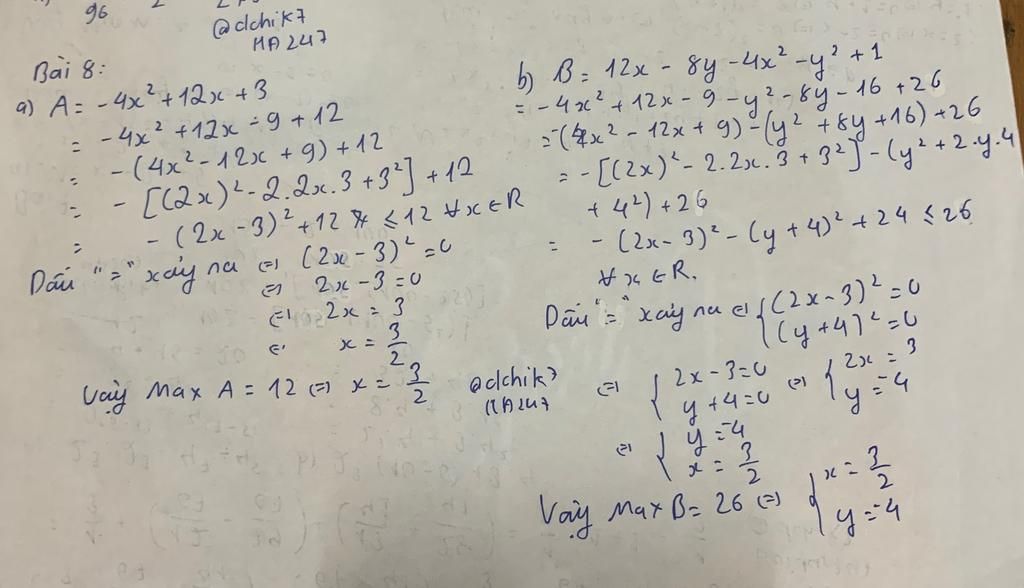 96
@dchik7
HA247
Bài 8:
a) A = -4x² + 12x + 3
= -4x² + 12x - 9 + 12
= -(4x² - 12x + 9) + 12
= -[(2x)² - 2.2x.3 + 3²] + 12
= -(2x - 3)² + 12 ≤ 12 ∀x ∈ R
Dấu "=" xảy ra ⇔ (2x - 3)² = 0
⇔ 2x - 3 = 0
⇔ 2x = 3
⇔ x = 3/2
Vậy Max A = 12 ⇔ x = 3/2
@dchik7
HA247
b) B = 12x - 8y - 4x² - y² + 1
= -4x² + 12x - 9 - y² - 8y - 16 + 26
= -(4x² - 12x + 9) - (y² + 8y + 16) + 26
= -[(2x)² - 2.2x.3 + 3²] - (y² + 2.y.4
+ 4²) + 26
= -(2x - 3)² - (y + 4)² + 24 ≤ 26
∀x ∈ R.
Dấu "=" xảy ra ⇔ { (2x - 3)² = 0
(y + 4)² = 0
⇔ { 2x - 3 = 0 ⇔ { 2x = 3
y + 4 = 0 y = -4
⇔ { y = -4
x = 3/2
Vậy Max B = 26 ⇔ { x = 3/2
y = -4